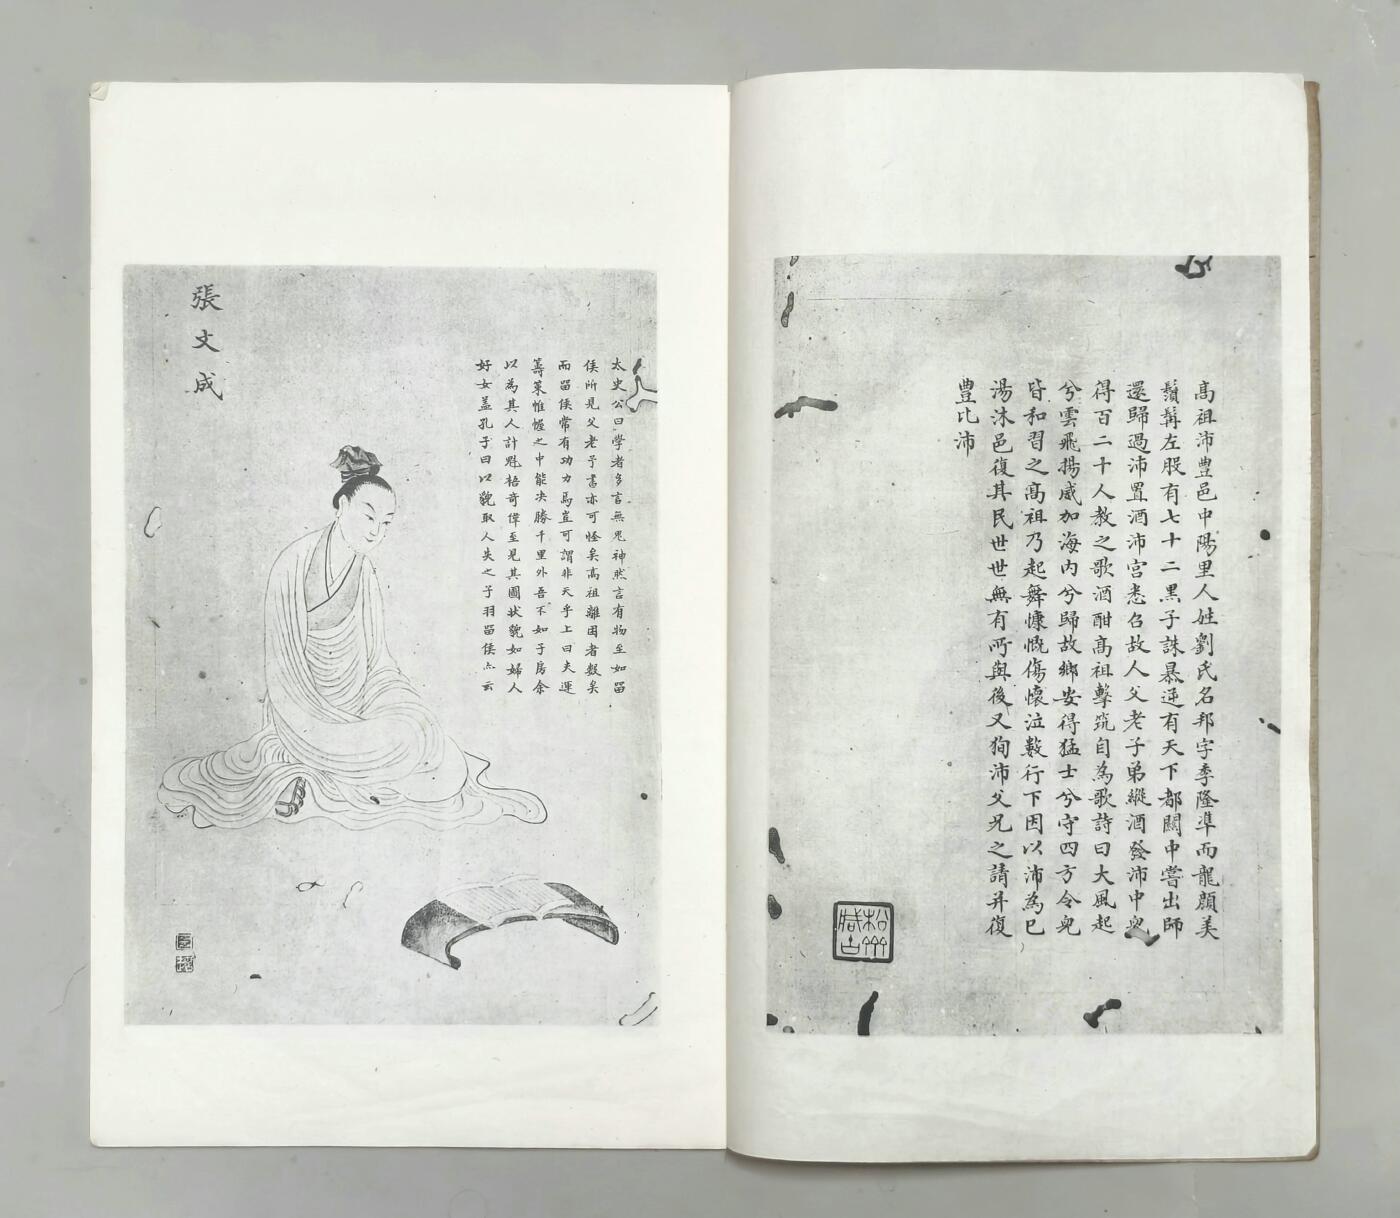 高祖沛豊邑中陽里人姓劉氏名邦字季隆準而龍顔美
鬚髯左股有七十二黒子誅暴逆有天下都關中嘗出師
還歸過沛置酒沛宮悉召故人父老子弟縱酒發沛中兒
得百二十人教之歌酒酣髙祖擊筑自為歌詩曰大風起
兮雲飛揚威加海内兮歸故鄉安得猛士兮守四方令兒
皆和習之髙祖乃起舞慷慨傷懷泣數行下因以沛為已
湯沐邑復其民世世無有所與後又狥沛父兄之請并復
豊比沛
張文成
太史公曰學者多言無鬼神然言有物至如畱
侯所見父老予書亦可怪矣高祖離困者数矣
而畱侯常有功力焉豈可謂非天乎上曰夫運
籌策惟幄之中能决勝千里外吾不如子房余
以為其人計魁梧奇偉至見其圖狀貌如婦人
好女盖孔子曰以貌取人失之子羽畱侯亦云